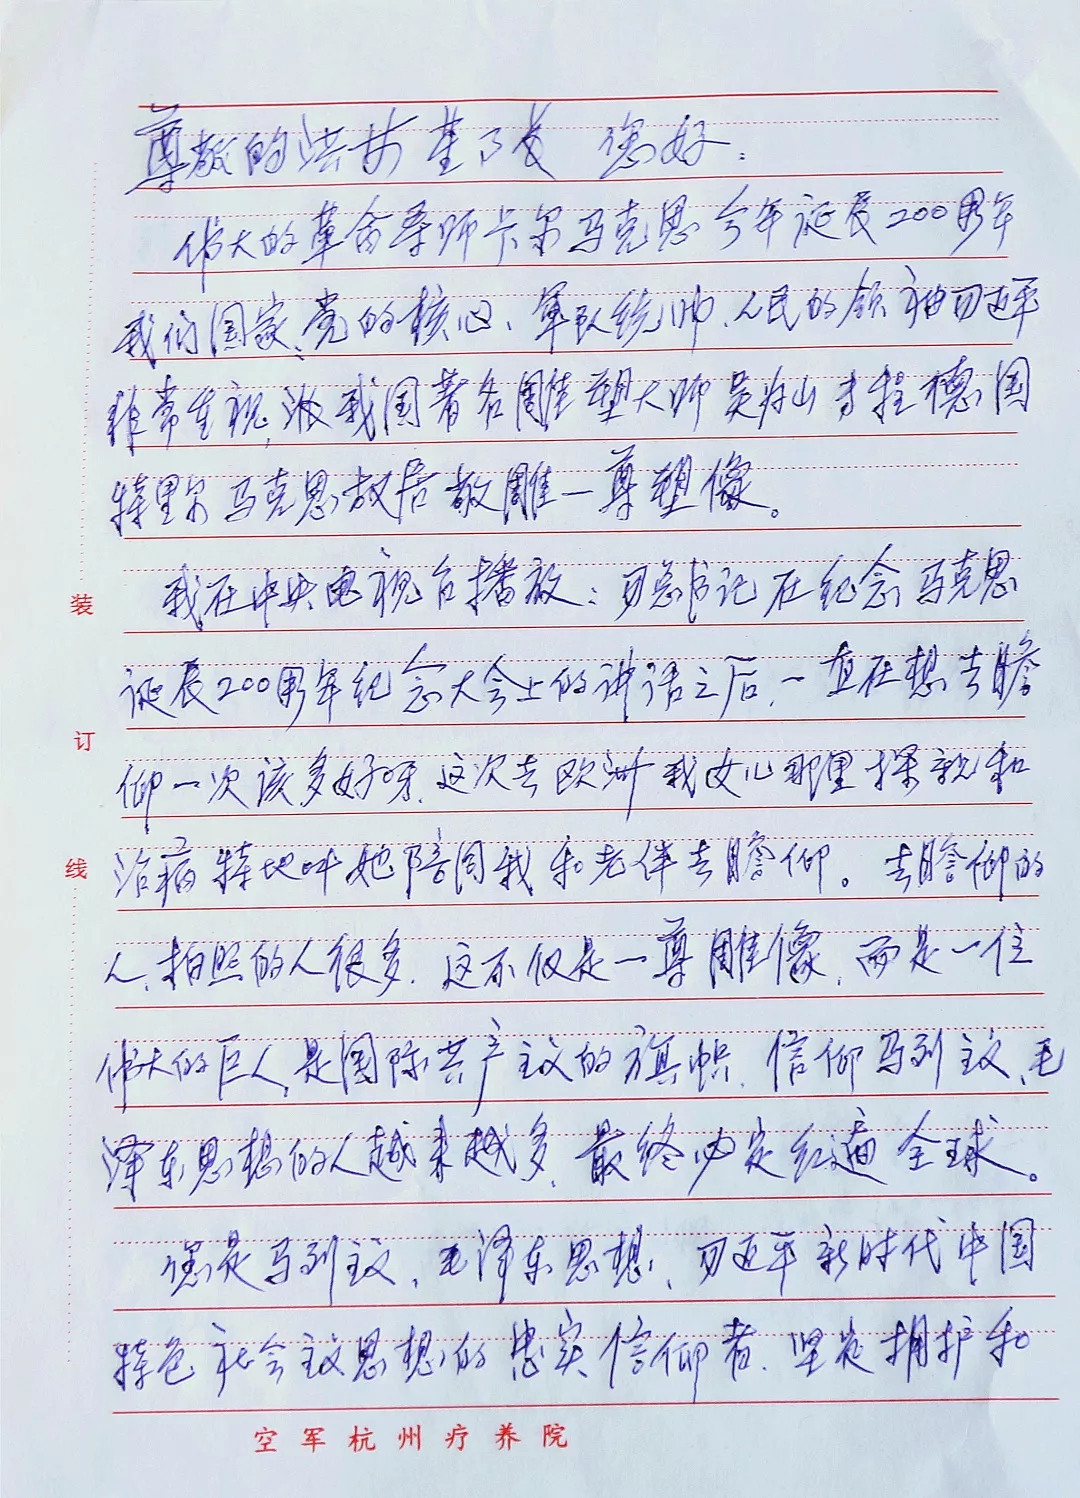 尊敬的洪才董事长 您好:
伟大的革命导师卡尔马克思今年诞辰200周年
我们国家、党的核心、军队统帅、人民的领袖习近平
非常重视,派我国著名雕塑大师吴为山专程德国
特里尔马克思故居敬雕一尊塑像。
我在中央电视台播放:习总书记在纪念马克思
诞辰200周年纪念大会上的讲话之后,一直在想去瞻
仰一次该多好呀,这次去欧洲我女儿那里探亲和
治病特地叫她陪同我和老伴去瞻仰。去瞻仰的
人、拍照的人很多,这不仅是一尊雕像,而是一位
伟大的巨人,是国际共产主义的旗帜,信仰马列主义、毛
泽东思想的人越来越多,最终必定红遍全球。
您是马列主义、毛泽东思想、习近平新时代中国
特色社会主义思想的忠实信仰者,坚定拥护和
装
订
线
空军杭州疗养院